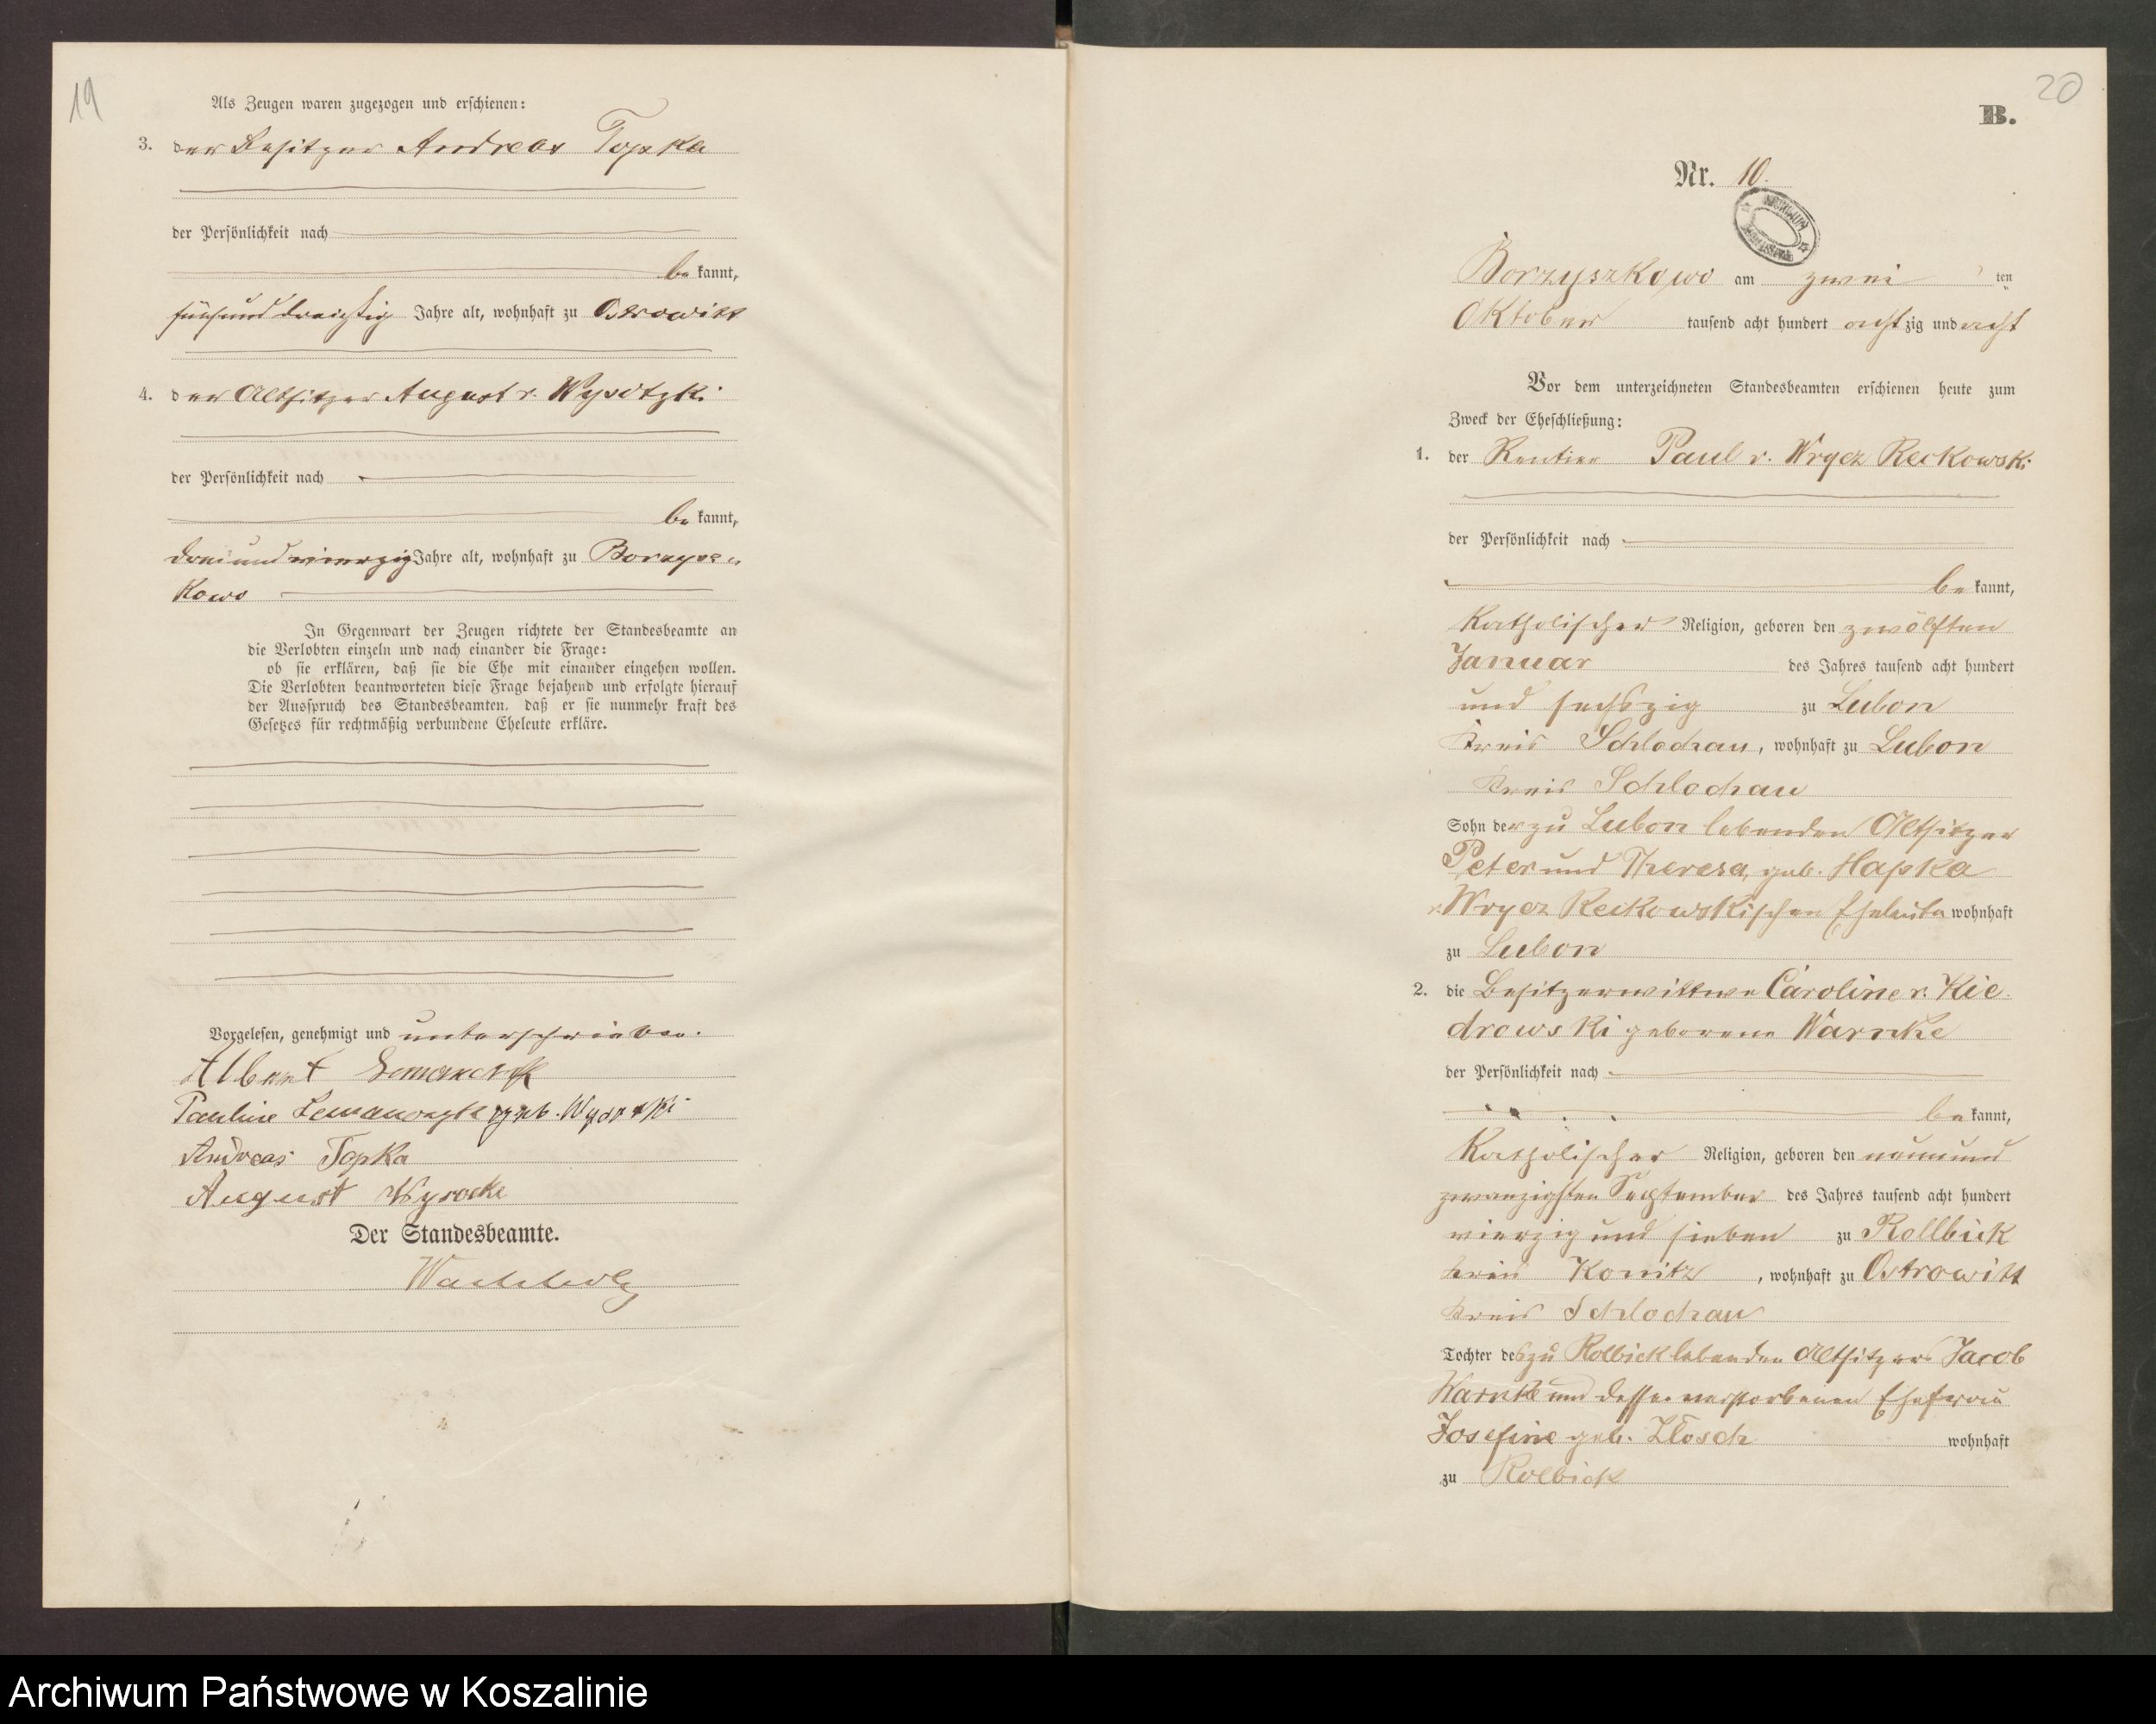 19
Als Zeugen waren zugezogen und erschienen:
3. der Besitzer Andreas Topka
der Persönlichkeit nach
be kannt,
fünfunddreißig Jahre alt, wohnhaft zu Ostrowitt
4. der Altsitzer August v. Wysotzki
der Persönlichkeit nach
be kannt,
dreiundvierzig Jahre alt, wohnhaft zu Borzysz„
kowo
In Gegenwart der Zeugen richtete der Standesbeamte an
die Verlobten einzeln und nach einander die Frage:
ob sie erklären, daß sie die Ehe mit einander eingehen wollen.
Die Verlobten beantworteten diese Frage bejahend und erfolgte hierauf
der Ausspruch des Standesbeamten, daß er sie nunmehr kraft des
Gesetzes für rechtmäßig verbundene Eheleute erkläre.
Vorgelesen, genehmigt und unterschrieben.
Albert
Pauline geb.
Andreas Topka
August Wysocki
Der Standesbeamte.
Wachholz
20
B.
Nr. 10.
ARCHIWUM
Borzyszkowo am zwei ten
Oktober tausend acht hundert achtzig und acht
Vor dem unterzeichneten Standesbeamten erschienen heute zum
Zweck der Eheschließung:
1. der Rentier Paul v. Wrycz Reckowski
der Persönlichkeit nach
be kannt,
katholischer Religion, geboren den zwölften
Januar des Jahres tausend acht hundert
und sechszig zu Lubon
Kreis Schlochau, wohnhaft zu Lubon
Kreis Schlochau
Sohn der zu Lubon lebenden Altsitzer
Peter und Theresa, geb. Hapka
v. Wrycz Reckowskischen Eheleute wohnhaft
zu Lubon
2. die Besitzerwittwe Caroline v. Kie
drowski geborene Warnke
der Persönlichkeit nach
be kannt,
katholischer Religion, geboren den neunund
zwanzigsten September des Jahres tausend acht hundert
vierzig und sieben zu Rollbick
Kreis Konitz, wohnhaft zu Ostrowitt
Kreis Schlochau
Tochter des zu Rolbick lebenden Altsitzers Jacob
Warnke und dessen verstorbenen Ehefrau
Josefine geb. wohnhaft
zu Rolbick
Archiwum Państwowe w Koszalinie